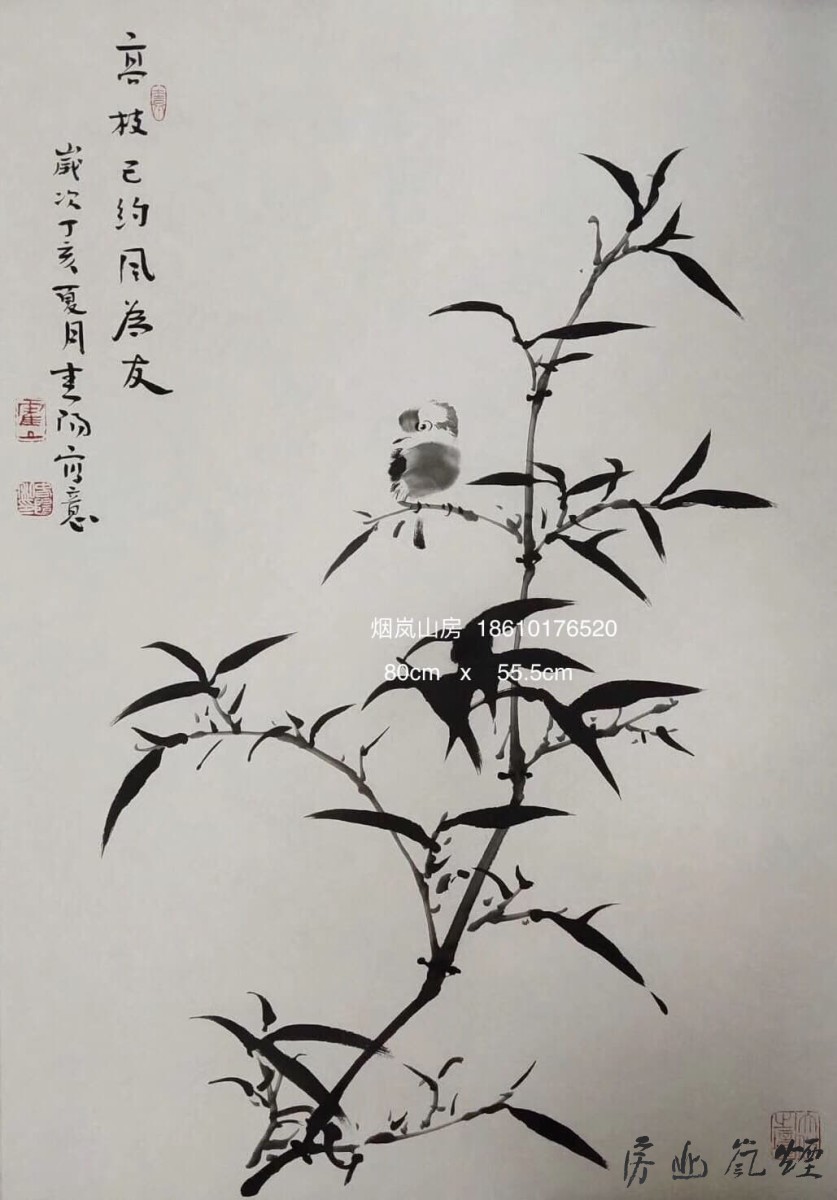 高枝已約風為友
歲次丁亥夏月春陽寫意
烟岚山房 18610176520
80cm x 55.5cm
煙嵐山房